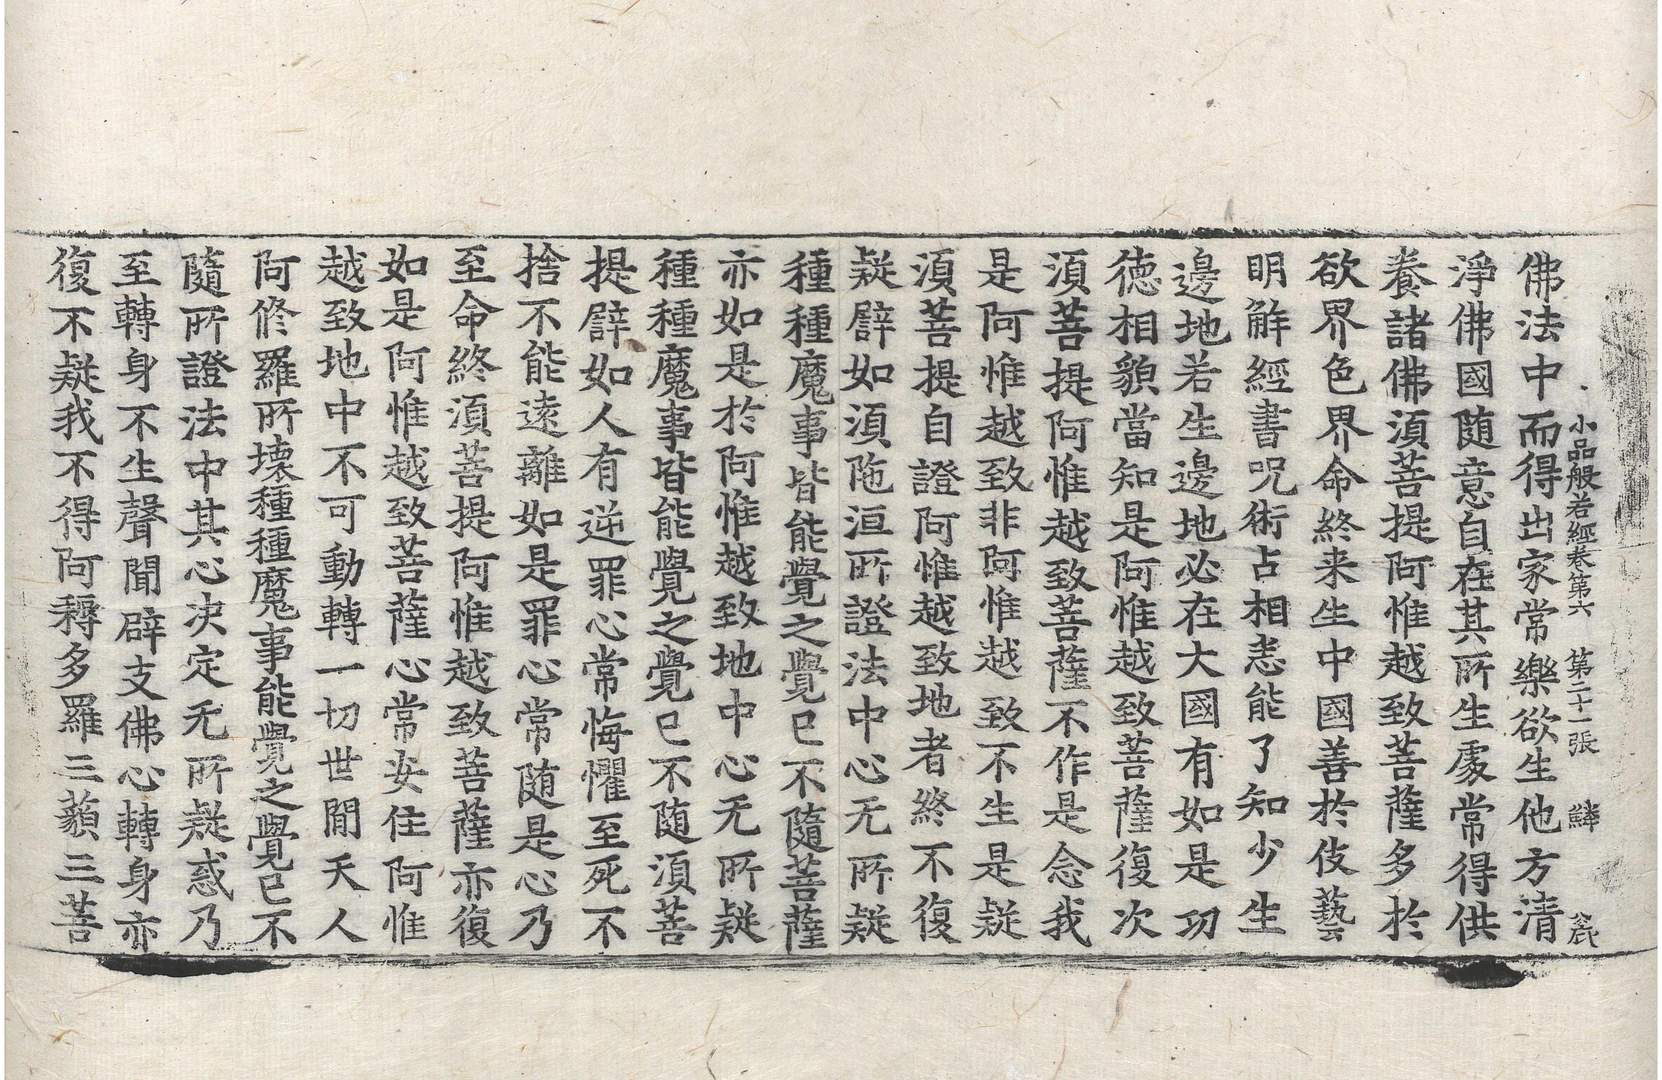 小品般若經卷第六 第二十一張 鱗
佛法中而得出家常樂欲生他方清
淨佛國随意自在其所生處常得供
養諸佛湏菩提阿惟越致菩薩多於
欲界色界命終来生中國善於伎藝
明解經書呪術占相悉能了知少生
邊地若生邊地必在大國有如是功
徳相貌當知是阿惟越致菩薩復次
湏菩提阿惟越致菩薩不作是念我
是阿惟越致非阿惟越致不生是疑
湏菩提自證阿惟越致地者終不復
疑譬如湏陁洹所證法中心无所疑
種種魔事皆能覺之覺已不隨菩薩
亦如是於阿惟越致地中心无所疑
種種魔事皆能覺之覺已不随湏菩
提譬如人有逆罪心常悔懼至死不
捨不能遠離如是罪心常随是心乃
至命終湏菩提阿惟越致菩薩亦復
如是阿惟越致菩薩心常安住阿惟
越致地中不可動轉一切世間天人
阿修羅所壞種種魔事能覺之覺已不
隨所證法中其心决定无所疑惑乃
至轉身不生聲聞辟支佛心轉身亦
復不疑我不得阿耨多羅三藐三菩